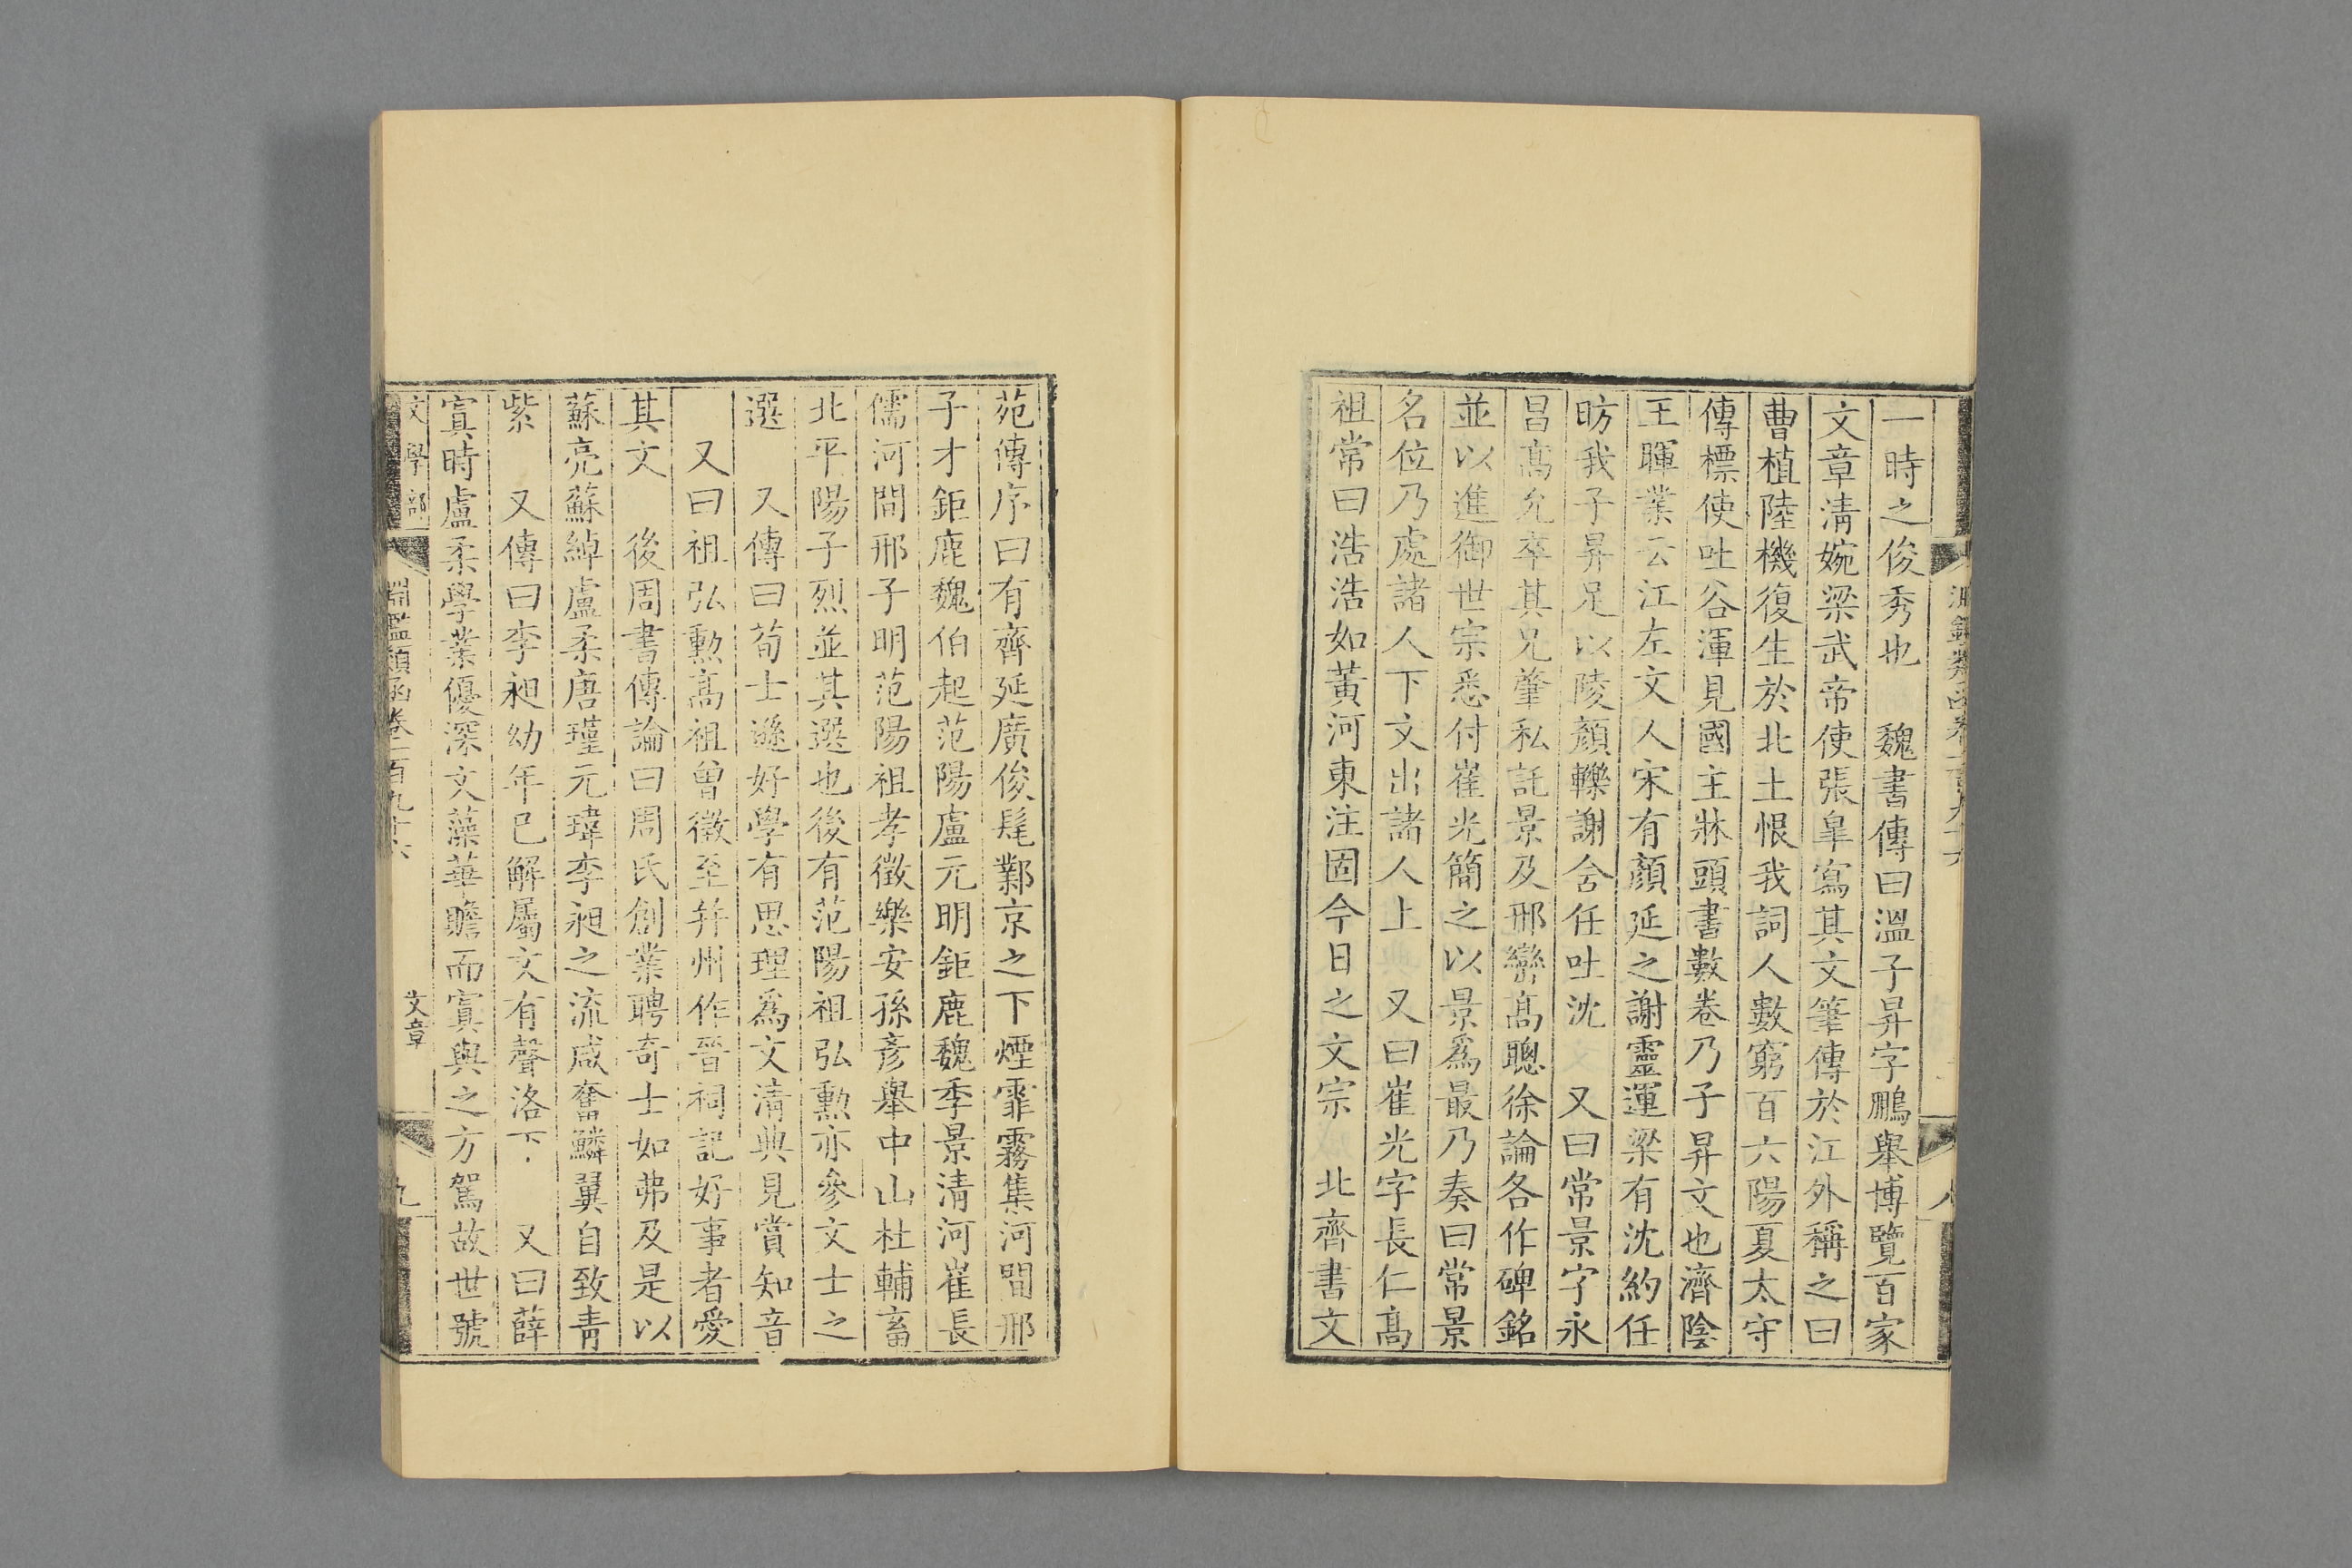 一時之俊秀也　魏書傳曰溫子昇字鵬舉博覽百家
文章清婉梁武帝使張皐寫其文筆傳於江外稱之曰
曹植陸機復生於北土恨我詞人數窮百六陽夏太守
傳標使吐谷渾見國主牀頭書數卷乃子昇文也濟陰
王暉業云江左文人宋有顏延之謝靈運梁有沈約任
昉我子昇足以陵顏轢謝含任吐沈　又曰常景字永
昌高允卒其兄肇私託景及邢巒高聰徐論各作碑銘
並以進御世宗悉付崔光簡之以景爲最乃奏曰常景
名位乃處諸人下文出諸人上　又曰崔光字長仁高
祖常曰浩浩如黃河東注固今日之文宗　北齊書文
苑傳序曰有齊延廣俊髦鄴京之下煙霏霧集河間邢
子才鉅鹿魏伯起范陽盧元明鉅鹿魏季景清河崔長
儒河間邢子明范陽祖孝徵樂安孫彥舉中山杜輔畜
北平陽子烈並其選也後有范陽祖弘勳亦參文士之
選　又傳曰荀士遜好學有思理爲文清典見賞知音
又曰祖弘勲高祖曾徵至幷州作晉祠記好事者愛
其文　後周書傳論曰周氏創業聘奇士如弗及是以
蘇亮蘇綽盧柔唐瑾元瑋李昶之流咸奮鱗翼自致青
紫　又傳曰李昶幼年已解屬文有聲洛下　又曰薛
寘時盧柔學業優深文藻華贍而寘與之方駕故世號
文學部　淵鑑類函卷一百九十六　文章　九